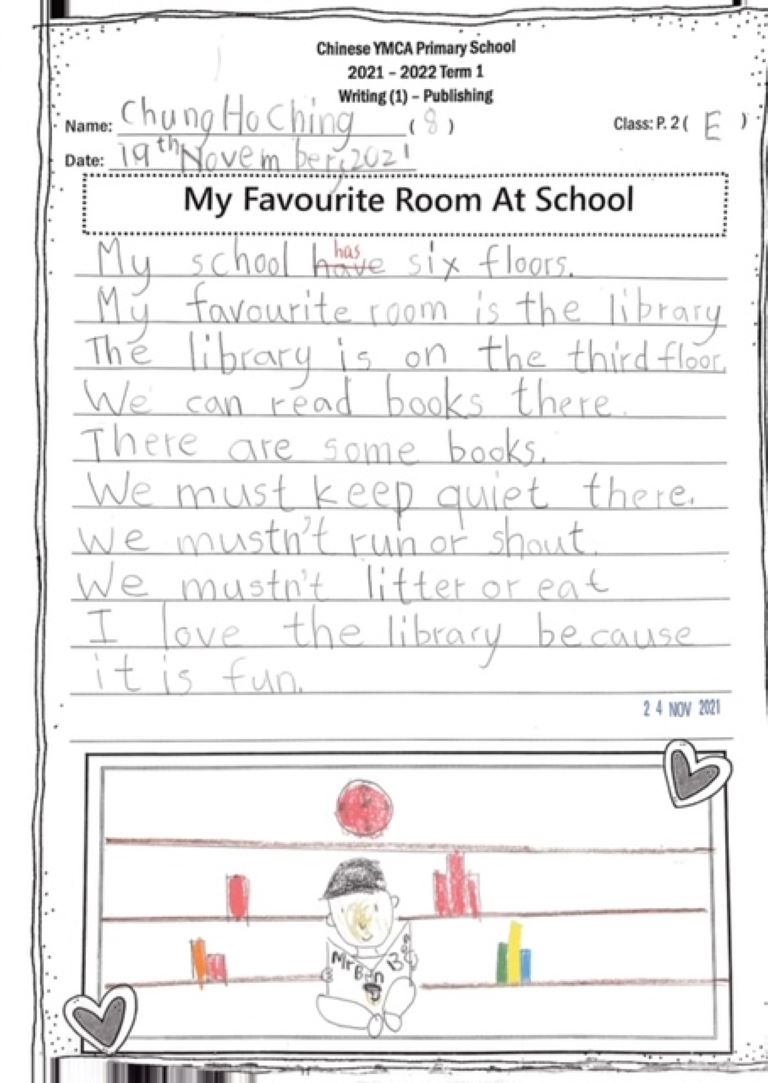 Chinese YMCA Primary School
2021 – 2022 Term 1
Writing (1) – Publishing
Name: Chung Ho Ching ( 8 ) Class: P. 2 ( E )
Date: 19th November, 2021
My Favourite Room At School
My school have has six floors.
My favourite room is the library
The library is on the third floor.
We can read books there.
There are some books.
We must keep quiet there.
We mustn't run or shout.
We mustn't litter or eat
I love the library because
it is fun.
24 NOV 2021